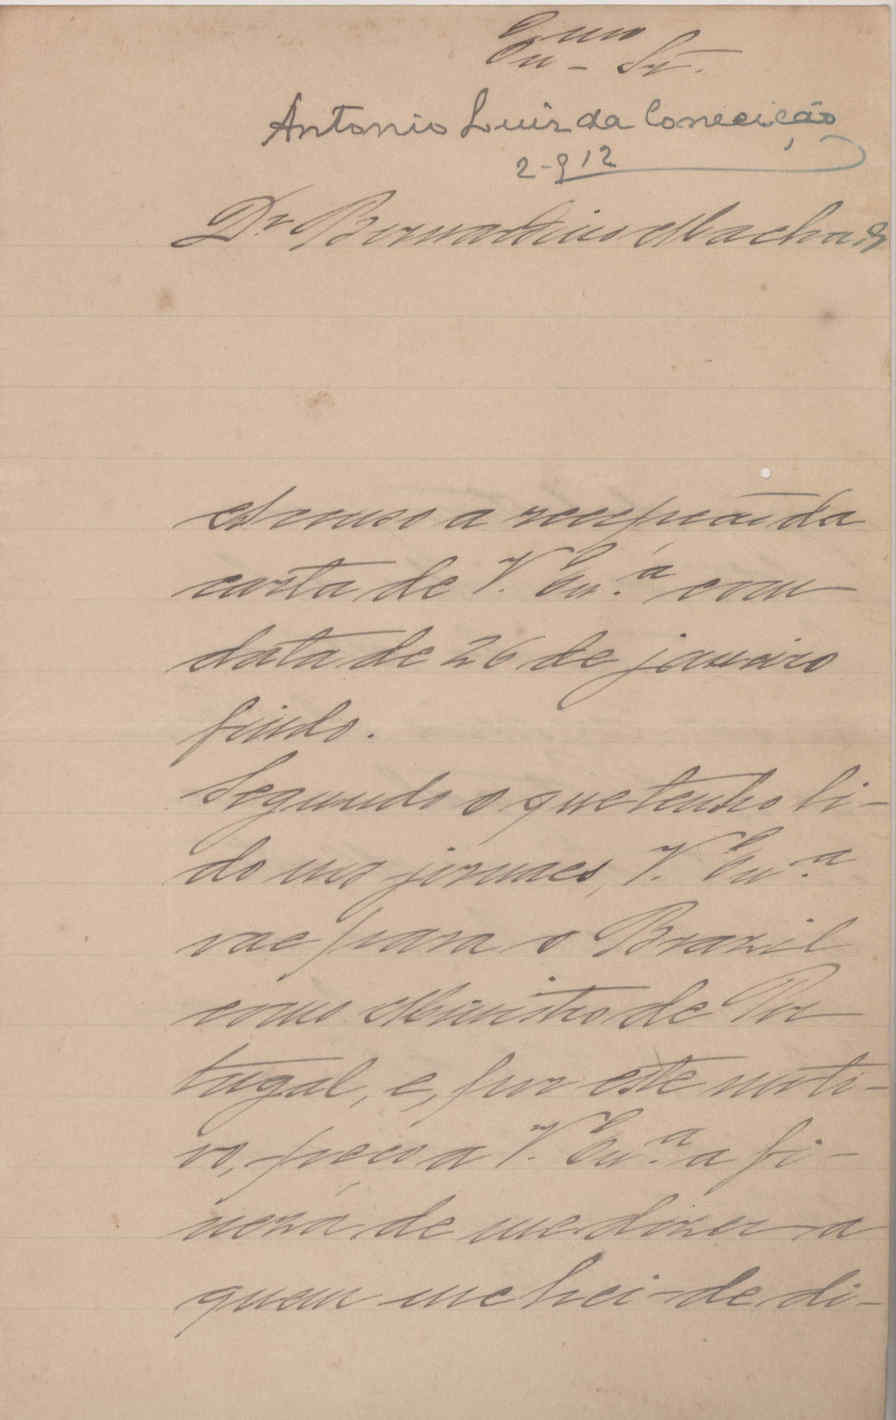 Exmo Sr.
Antonio Luis da Conceição
2-912
Dr Bernardino Machado
Accuso a recepção da
carta de V. Ex.ª com
data de 26 de janeiro
findo.
Segundo o que tenho li-
do nos jornaes, V. Ex.ª
vae para o Brazil
como Ministro de Por
tugal, e, por este moti-
vo, peço a V. Ex.ª a fi-
neza de me dizer a
quem me hei-de di-